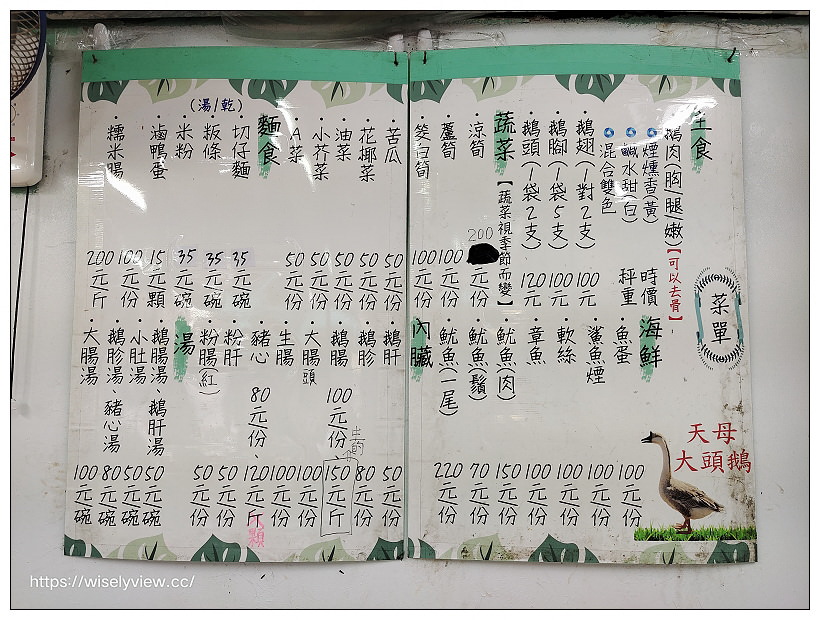 菜單
天母
大頭鵝
主食
鵝肉(胸/腿/嫩)【可以去骨】
煙燻香(黃) 時價
鹹水甜(白) 秤重
混合雙色
鵝翅(1對2支) 100元
鵝腳(1袋5支) 100元
鵝頭(1袋2支) 120元
蔬菜【蔬菜視季節而變】
涼筍 200元/份
蘆筍 100元/份
筊白筍 100元/份
海鮮
魚蛋 100元/份
鯊魚煙 100元/份
軟絲 100元/份
章魚 100元/份
魷魚(肉) 150元/份
魷魚(鬚) 70元/份
魷魚(一尾) 220元/份
內臟
苦瓜 50元/份
花椰菜 50元/份
油菜 50元/份
小芥菜 50元/份
A菜 50元/份
麵食
(湯/乾)
切仔麵 35元/碗
粄條 35元/碗
米粉 35元/碗
滷鴨蛋 15元/顆
糯米腸 100元/份 200元/斤
鵝肝 50元/份
鵝胗 80元/份
鵝腸 100元/份、生的 150元/斤
大腸頭 100元/份
生腸 100元/份
豬心 80元/份、120元/斤 顆
粉肝 50元/份
粉腸(紅) 50元/份
湯
鵝腸湯、鵝肝湯 50元/碗
小肚湯 50元/碗
鵝胗湯、豬心湯 80元/碗
大腸湯 100元/碗
https://wiselyview.cc/